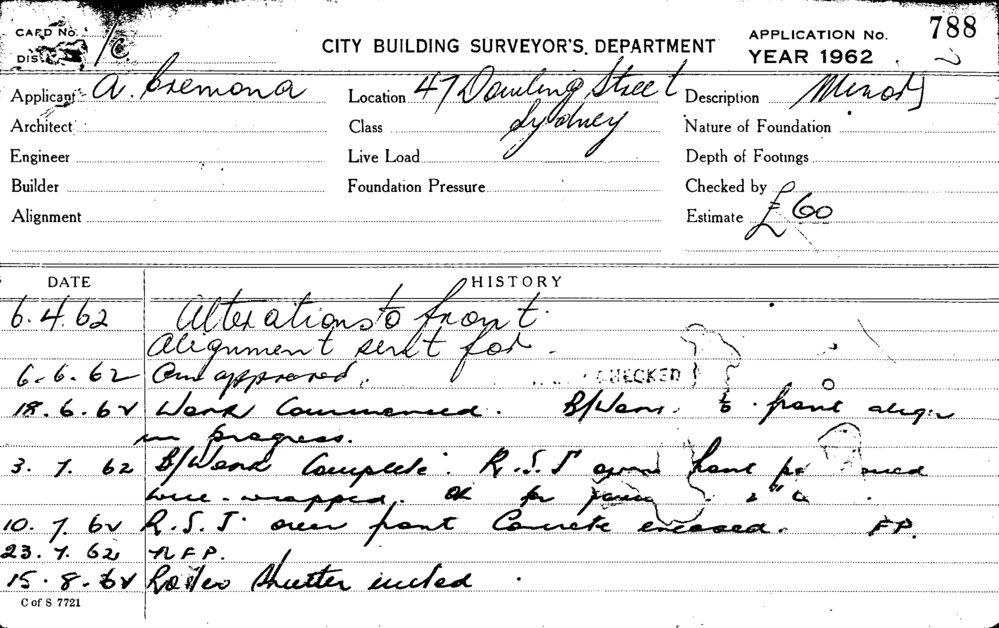 CARD No.
DIS
CITY BUILDING SURVEYOR'S. DEPARTMENT
APPLICATION No. 788
YEAR 1962
Applicant A. Cremona
Location 47 Dowling Street
Sydney
Description Minor
Architect
Class
Nature of Foundation
Engineer
Live Load
Depth of Footings
Builder
Foundation Pressure
Checked by
Alignment
Estimate £60
DATE HISTORY
6.4.62 Alterations to front.
Alignment sent for.
6.6.62 approved.
CHECKED
18.6.62 Work Commenced. B/Work to front align
in progress.
3.7.62 B/Work Complete. R.S.J over front
wire-wrapped. OK for
10.7.62 R.S.J. over front Concrete encased. FP.
23.7.62 NFP.
15.8.62 Roller Shutter
C of S 7721